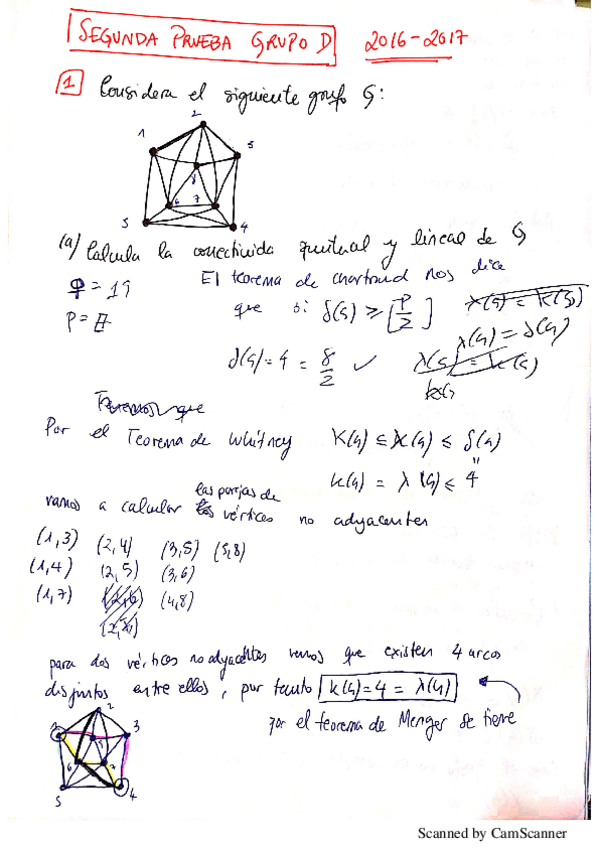 SEGUNDA PRUEBA GRUPO D 2016-2017
1 Considera el siguiente grafo G:
2
1
5
8
6 7
5 4
(a) Calcula la conectivida puntual y lineal de G
q = 19 El teorema de chartrand nos dice
p = 8 que si δ(G) ≥ [p/2] λ(G) = k(G)
λ(G) = δ(G)
δ(G) = 4 = 8/2 ✓ λ(G) = k(G)
Tenemos que
Por el Teorema de Whitney K(G) ≤ λ(G) ≤ δ(G)
k(G) = λ(G) ≤ 4
las parejas de
vamos a calcular los vértices no adyacentes
(1,3) (2,4) (3,5) (5,8)
(1,4) (2,5) (3,6)
(1,7) (2,6) (4,8)
para dos vértices no adyacentes vemos que existen 4 arcos
disjuntos entre ellos, por tanto k(G)=4 = λ(G)
por el teorema de Menger se tiene
2
3
6
5 4
Scanned by CamScanner